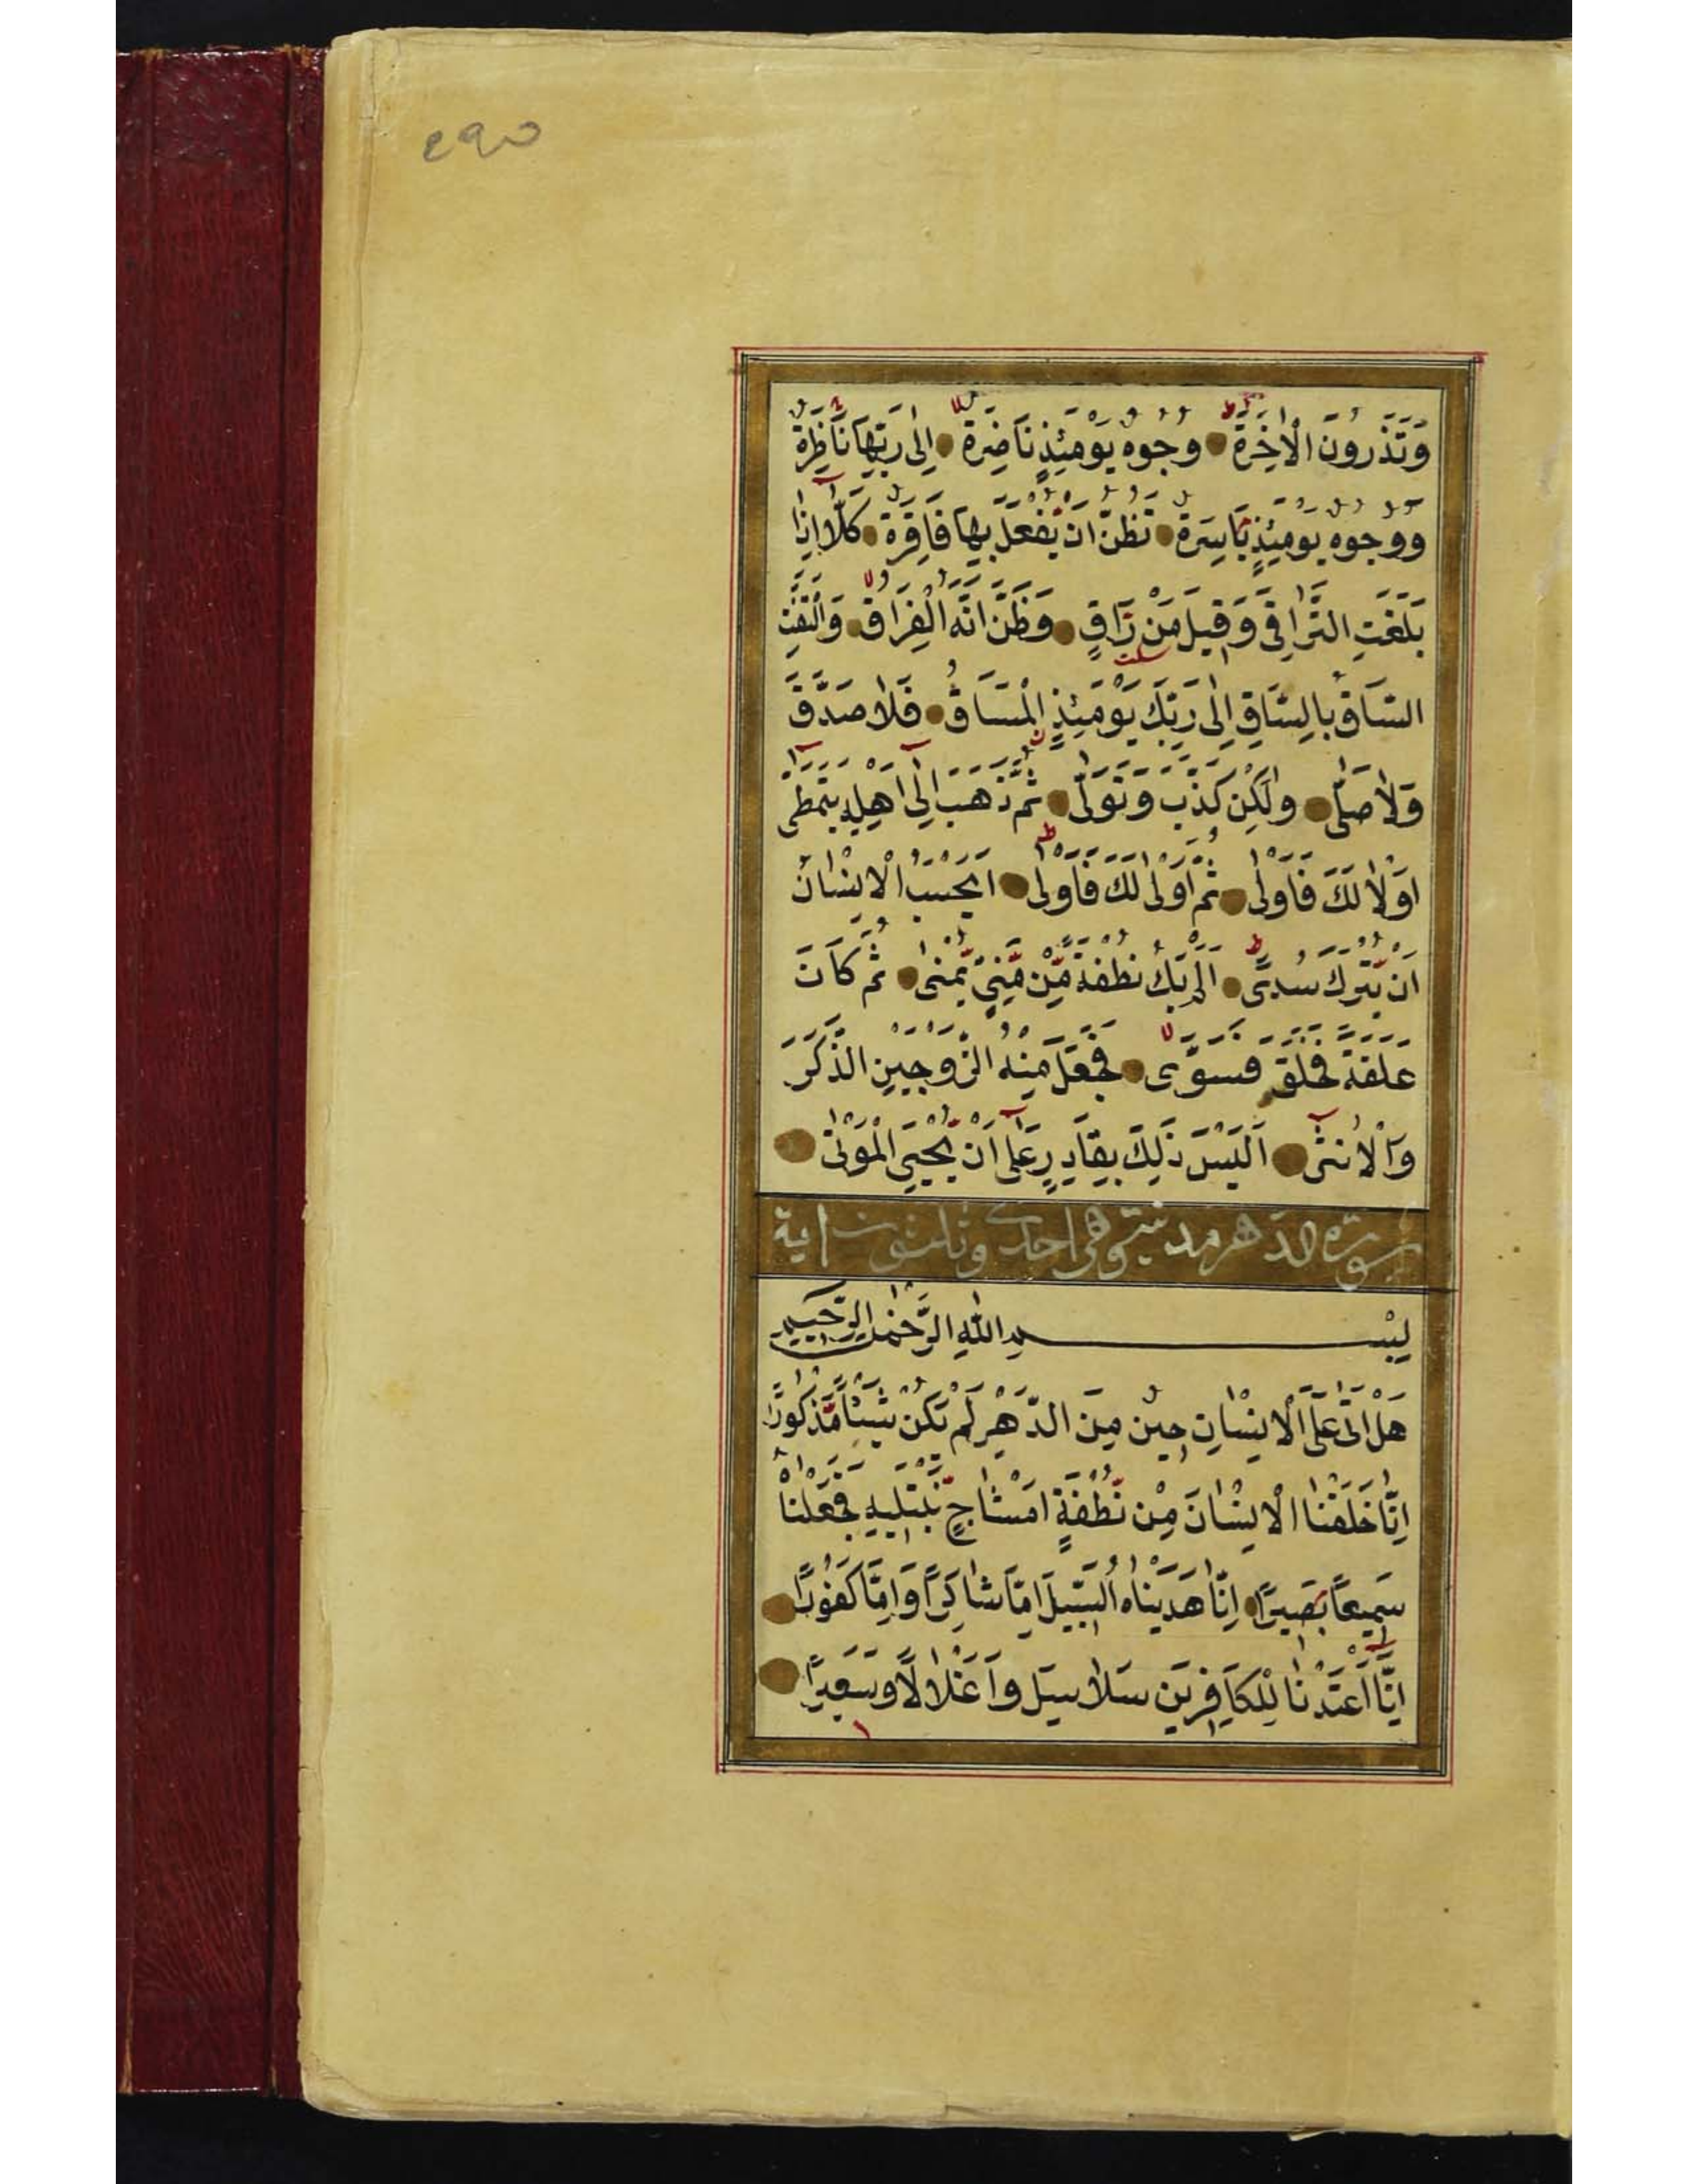 وَتَذَرُونَ الْاٰخِرَةَ وُجُوهٌ يَوْمَئِذٍ نَاضِرَةٌ اِلٰى رَبِّهَا نَاظِرَةٌ
وَوُجُوهٌ يَوْمَئِذٍ بَاسِرَةٌ تَظُنُّ اَنْ يُفْعَلَ بِهَا فَاقِرَةٌ كَلَّا اِذَا
بَلَغَتِ التَّرَاقِيَ وَقِيلَ مَنْ رَاقٍ وَظَنَّ اَنَّهُ الْفِرَاقُ وَالْتَفَّتِ
السَّاقُ بِالسَّاقِ اِلٰى رَبِّكَ يَوْمَئِذٍ الْمَسَاقُ فَلَا صَدَّقَ
وَلَا صَلّٰى وَلٰكِنْ كَذَّبَ وَتَوَلّٰى ثُمَّ ذَهَبَ اِلٰٓى اَهْلِهِ يَتَمَطّٰى
اَوْلٰى لَكَ فَاَوْلٰى ثُمَّ اَوْلٰى لَكَ فَاَوْلٰى اَيَحْسَبُ الْاِنْسَانُ
اَنْ يُتْرَكَ سُدًى اَلَمْ يَكُ نُطْفَةً مِّنْ مَّنِيٍّ يُّمْنٰى ثُمَّ كَانَ
عَلَقَةً فَخَلَقَ فَسَوّٰى فَجَعَلَ مِنْهُ الزَّوْجَيْنِ الذَّكَرَ
وَالْاُنْثٰى اَلَيْسَ ذٰلِكَ بِقَادِرٍ عَلٰٓى اَنْ يُّحْيِيَ الْمَوْتٰى
سورة الدهر مدنية وهي احدى وثلثون اية
بِسْمِ اللّٰهِ الرَّحْمٰنِ الرَّحِيمِ
هَلْ اَتٰى عَلَى الْاِنْسَانِ حِينٌ مِنَ الدَّهْرِ لَمْ يَكُنْ شَيْئًا مَّذْكُورًا
اِنَّا خَلَقْنَا الْاِنْسَانَ مِنْ نُّطْفَةٍ اَمْشَاجٍ نَّبْتَلِيهِ فَجَعَلْنَاهُ
سَمِيعًا بَصِيرًا اِنَّا هَدَيْنَاهُ السَّبِيلَ اِمَّا شَاكِرًا وَاِمَّا كَفُورًا
اِنَّا اَعْتَدْنَا لِلْكَافِرِينَ سَلَاسِلَ وَاَغْلَالًا وَسَعِيرًا